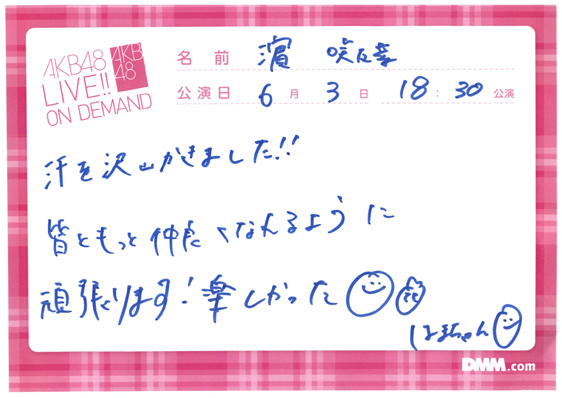 AKB48
LIVE!!
ON DEMAND
AKB
48
名前 濵 咲友菜
公演日 6月 3日 18:30 公演
汗を沢山かきました!!
皆ともっと仲良くなれるように
頑張ります!楽しかった
はまちゃん
DMM.com